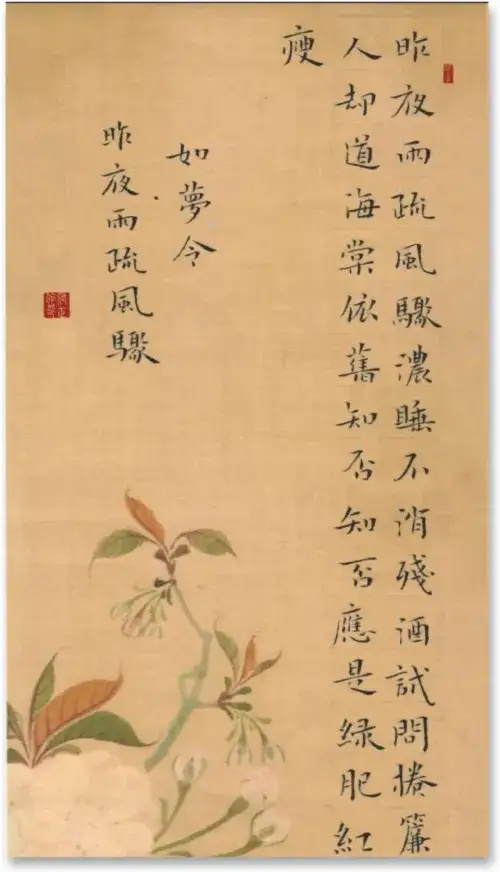 昨夜雨疏風驟濃睡不消殘酒試問捲簾
人却道海棠依舊知否知否應是緑肥紅
瘦
如夢令
昨夜雨疏風驟